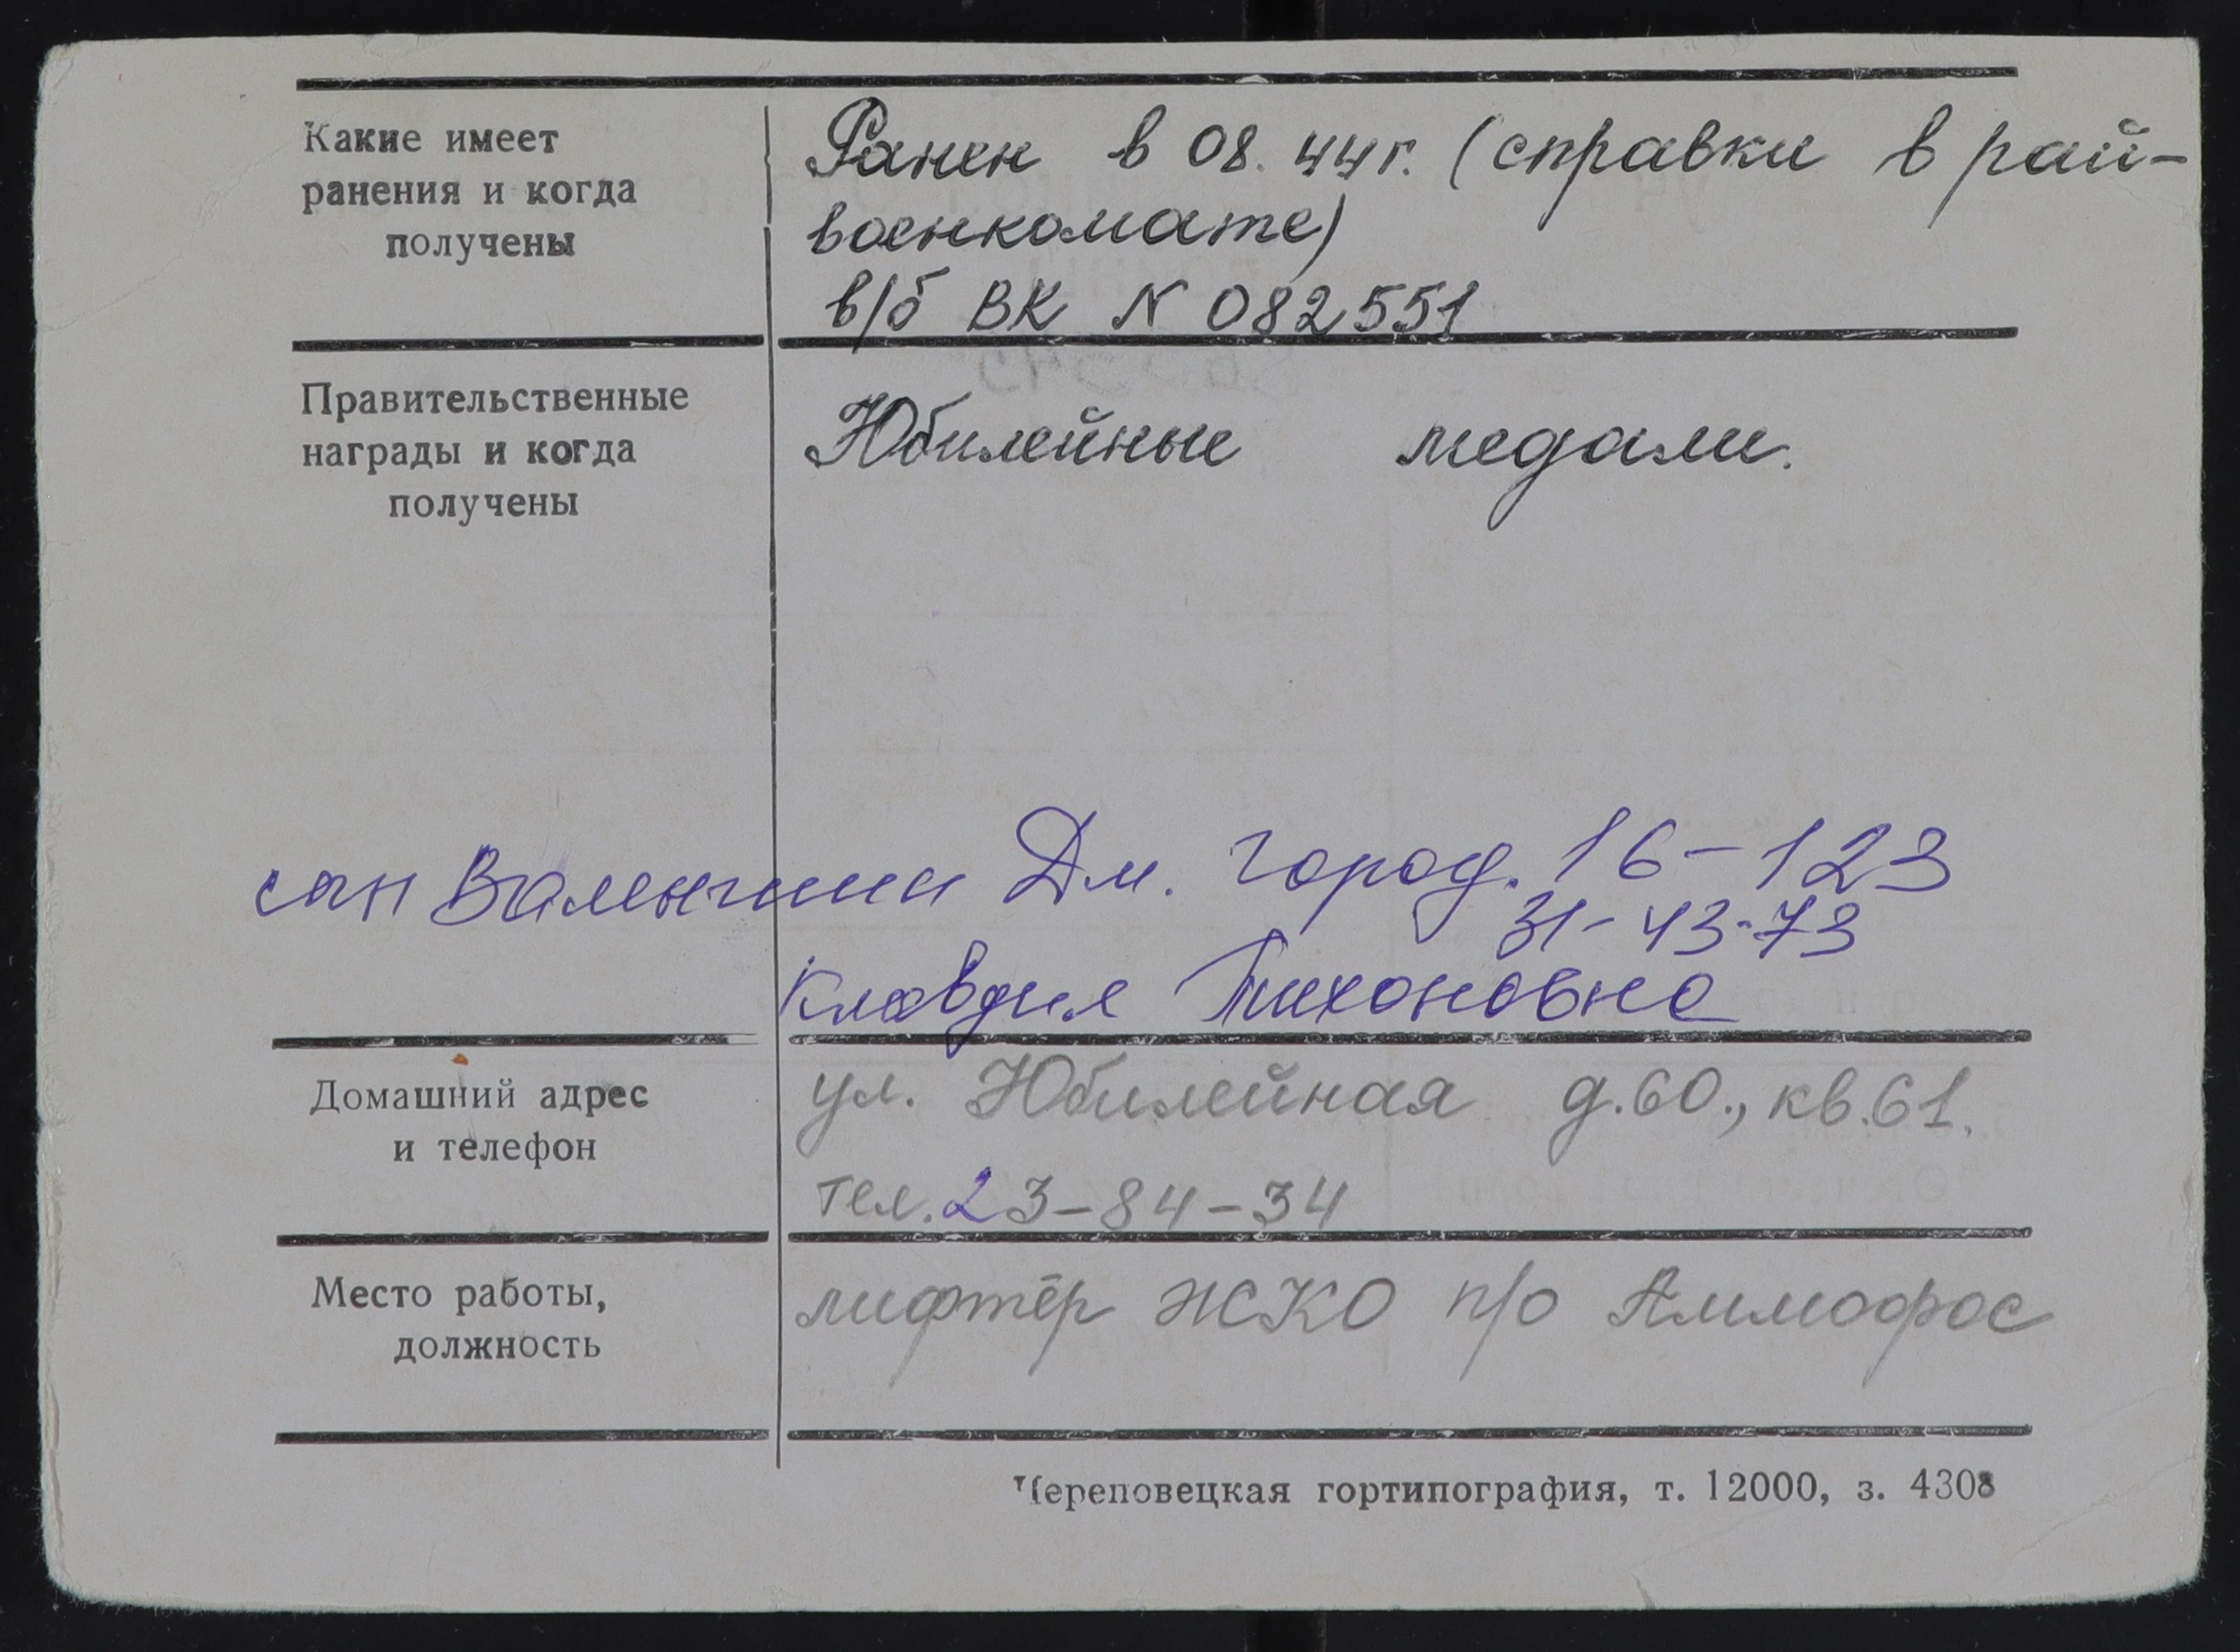 Какие имеет
ранения и когда
получены
Ранен в 08. 44г. (справки в рай-
военкомате)
в/б ВК N 082551
Правительственные
награды и когда
получены
Юбилейные медали.
сын Валентин Дм. Город. 16-123
31-43-73
Клавдия Тихоновна
Домашний адрес
и телефон
ул. Юбилейная д.60., кв.61.
тел. 23-84-34
Место работы,
должность
лифтёр ЖКО п/о Аммофос
Череповецкая гортипография, т. 12000, з. 4308